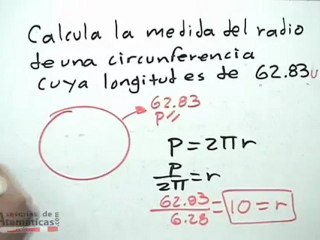 Calcula la medida del radio
de una circunferencia
cuya longitud es de 62.83u
62.83
P
P = 2πr
P/2π = r
62.83/6.28 = 10 = r
atemáticas.com